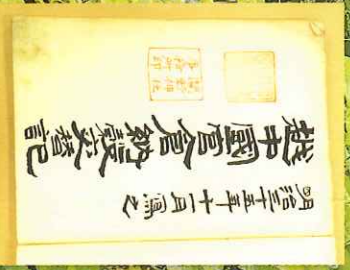 越中國官倉納穀交替記
明治三十五年十一月寫之